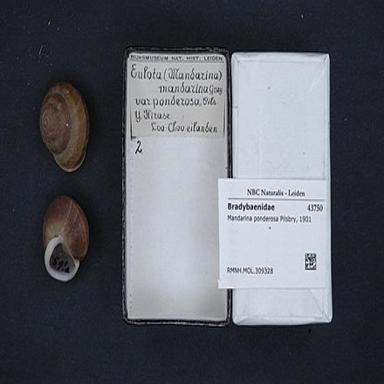 RIJKSMUSEUM NAT. HIST. LEIDEN
Eulota (Mandarina)
mandarina Gray
var ponderosa, Pils
Y. Hirase
Loo-Choo eilanden
2
NBC Naturalis - Leiden
Bradybaenidae 43750
Mandarina ponderosa Pilsbry, 1901
RMNH.MOL.309328